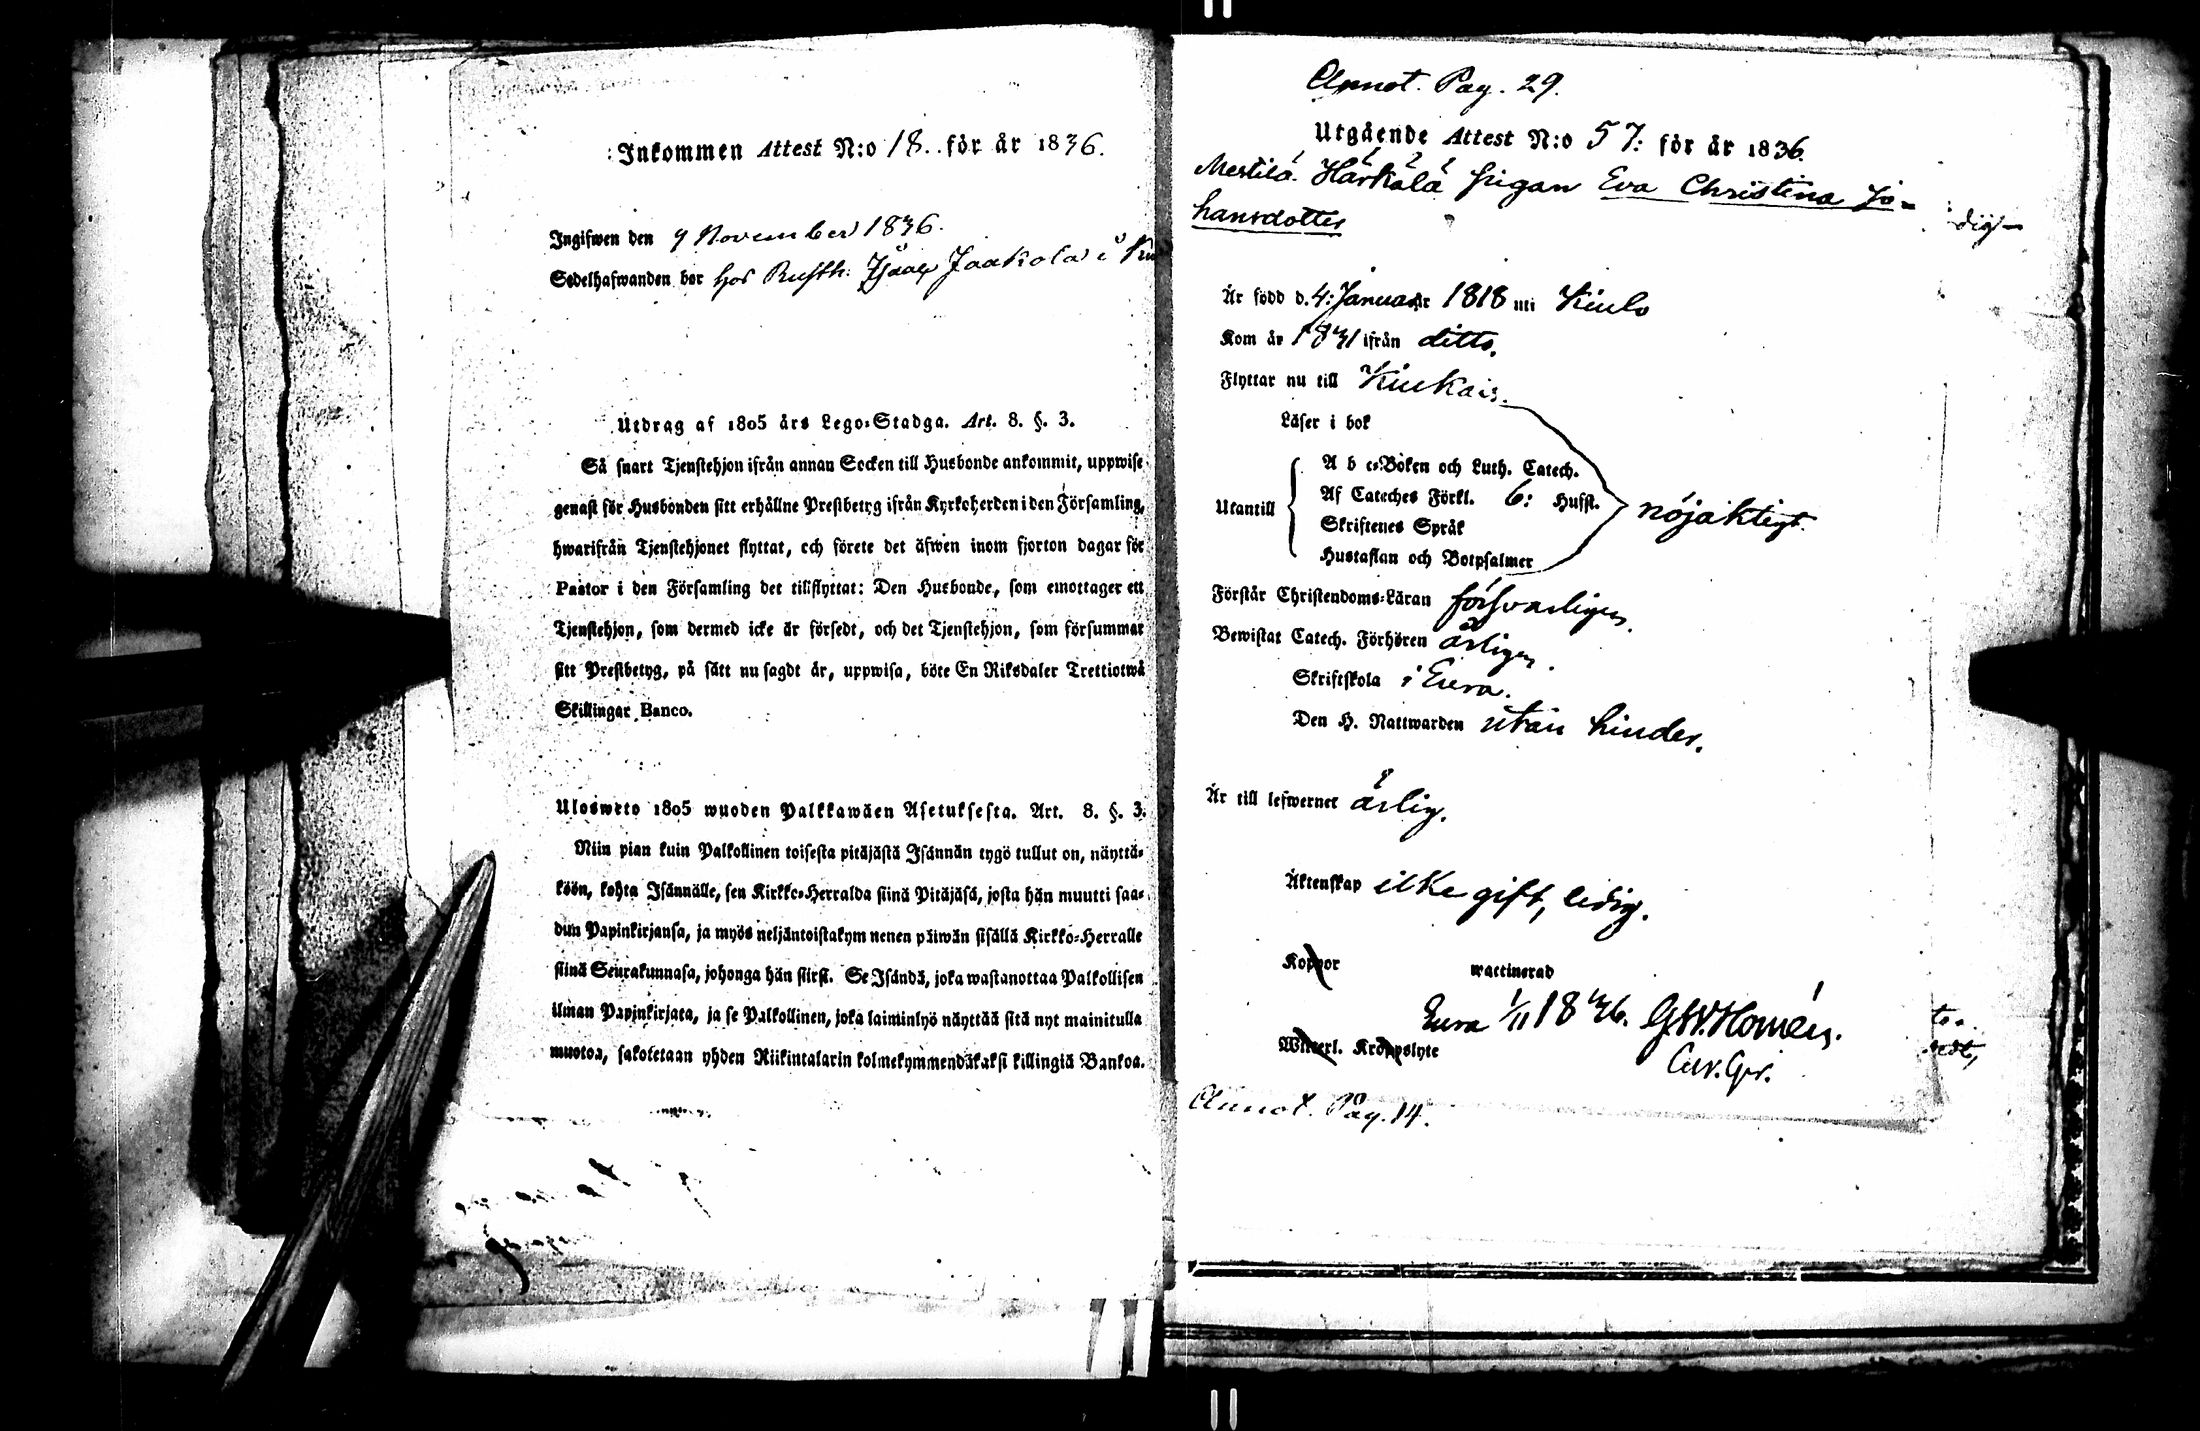 Inkommen Attest N:o 18. för år 1836.
Ingifwen den 9 November 1836.
Sedelhafwanden bor hos Rusth: Isaac Jaakola i
Utdrag af 1805 års Lego-Stadga. Art. 8. §. 3.
Så snart Tjenstehjon ifrån annan Socken till Husbonde ankommit, uppwise
genast för Husbonden sitt erhållne Prestbetyg ifrån Kyrkoherden i den Församling,
hwarifrån Tjenstehjonet flyttat, och förete det äfwen inom fjorton dagar för
Pastor i den Församling det tillflyttat: Den Husbonde, som emottager ett
Tjenstehjon, som dermed icke är försedt, och det Tjenstehjon, som försummar
sitt Prestbetyg, på sätt nu sagdt är, uppwisa, böte En Riksdaler Trettiotwå
Skillingar Banco.
Ulosweto 1805 wuoden Palkkawäen Asetuksesta. Art. 8. §. 3.
Niin pian kuin Palkollinen toisesta pitäjästä Isännän tygö tullut on, näyttä-
köön, kohta Isännälle, sen Kirkko-Herralda siinä Pitäjäsä, josta hän muutti saa-
dun Papinkirjansa, ja myös neljäntoistakymmenen päiwän sisällä Kirkko-Herralle
siinä Seurakunnasa, johonga hän siirsi. Se Isändä, joka wastanottaa Palkollisen
ilman Papinkirjata, ja se Palkollinen, joka laiminlyö näyttää sitä nyt mainitulla
muotoa, sakotetaan yhden Riikintalarin kolmekymmendäkaksi killingiä Bankoa.
Annot. Pag. 29.
Utgående Attest N:o 57: för år 1836.
Mestilä Härkälä pigan Eva Christina Jo-
hansdotter
Är född d. 4: Januar år 1818 uti Kiulo
Kom år 1831 ifrån ditto.
Flyttar nu till Kiukais.
Läser i bok
Utantill
A b c-Boken och Luth. Catech.
Af Cateches Förkl. 6: Husst.
Skriftenes Språk
Hustaflan och Botpsalmer
nöjaktigt.
Förstår Christendoms-Läran försvarligen.
Bewistat Catech. Förhören årligen.
Skriftskola i Eura.
Den H. Nattwarden utan hinder.
Är till lefwernet ärlig.
Äktenskap icke gift, ledig.
Koppor
waccinerad
Eura 1/11 1836. G.W. Homén.
Winterl. Kroppslyte
Annot. Pag. 14.